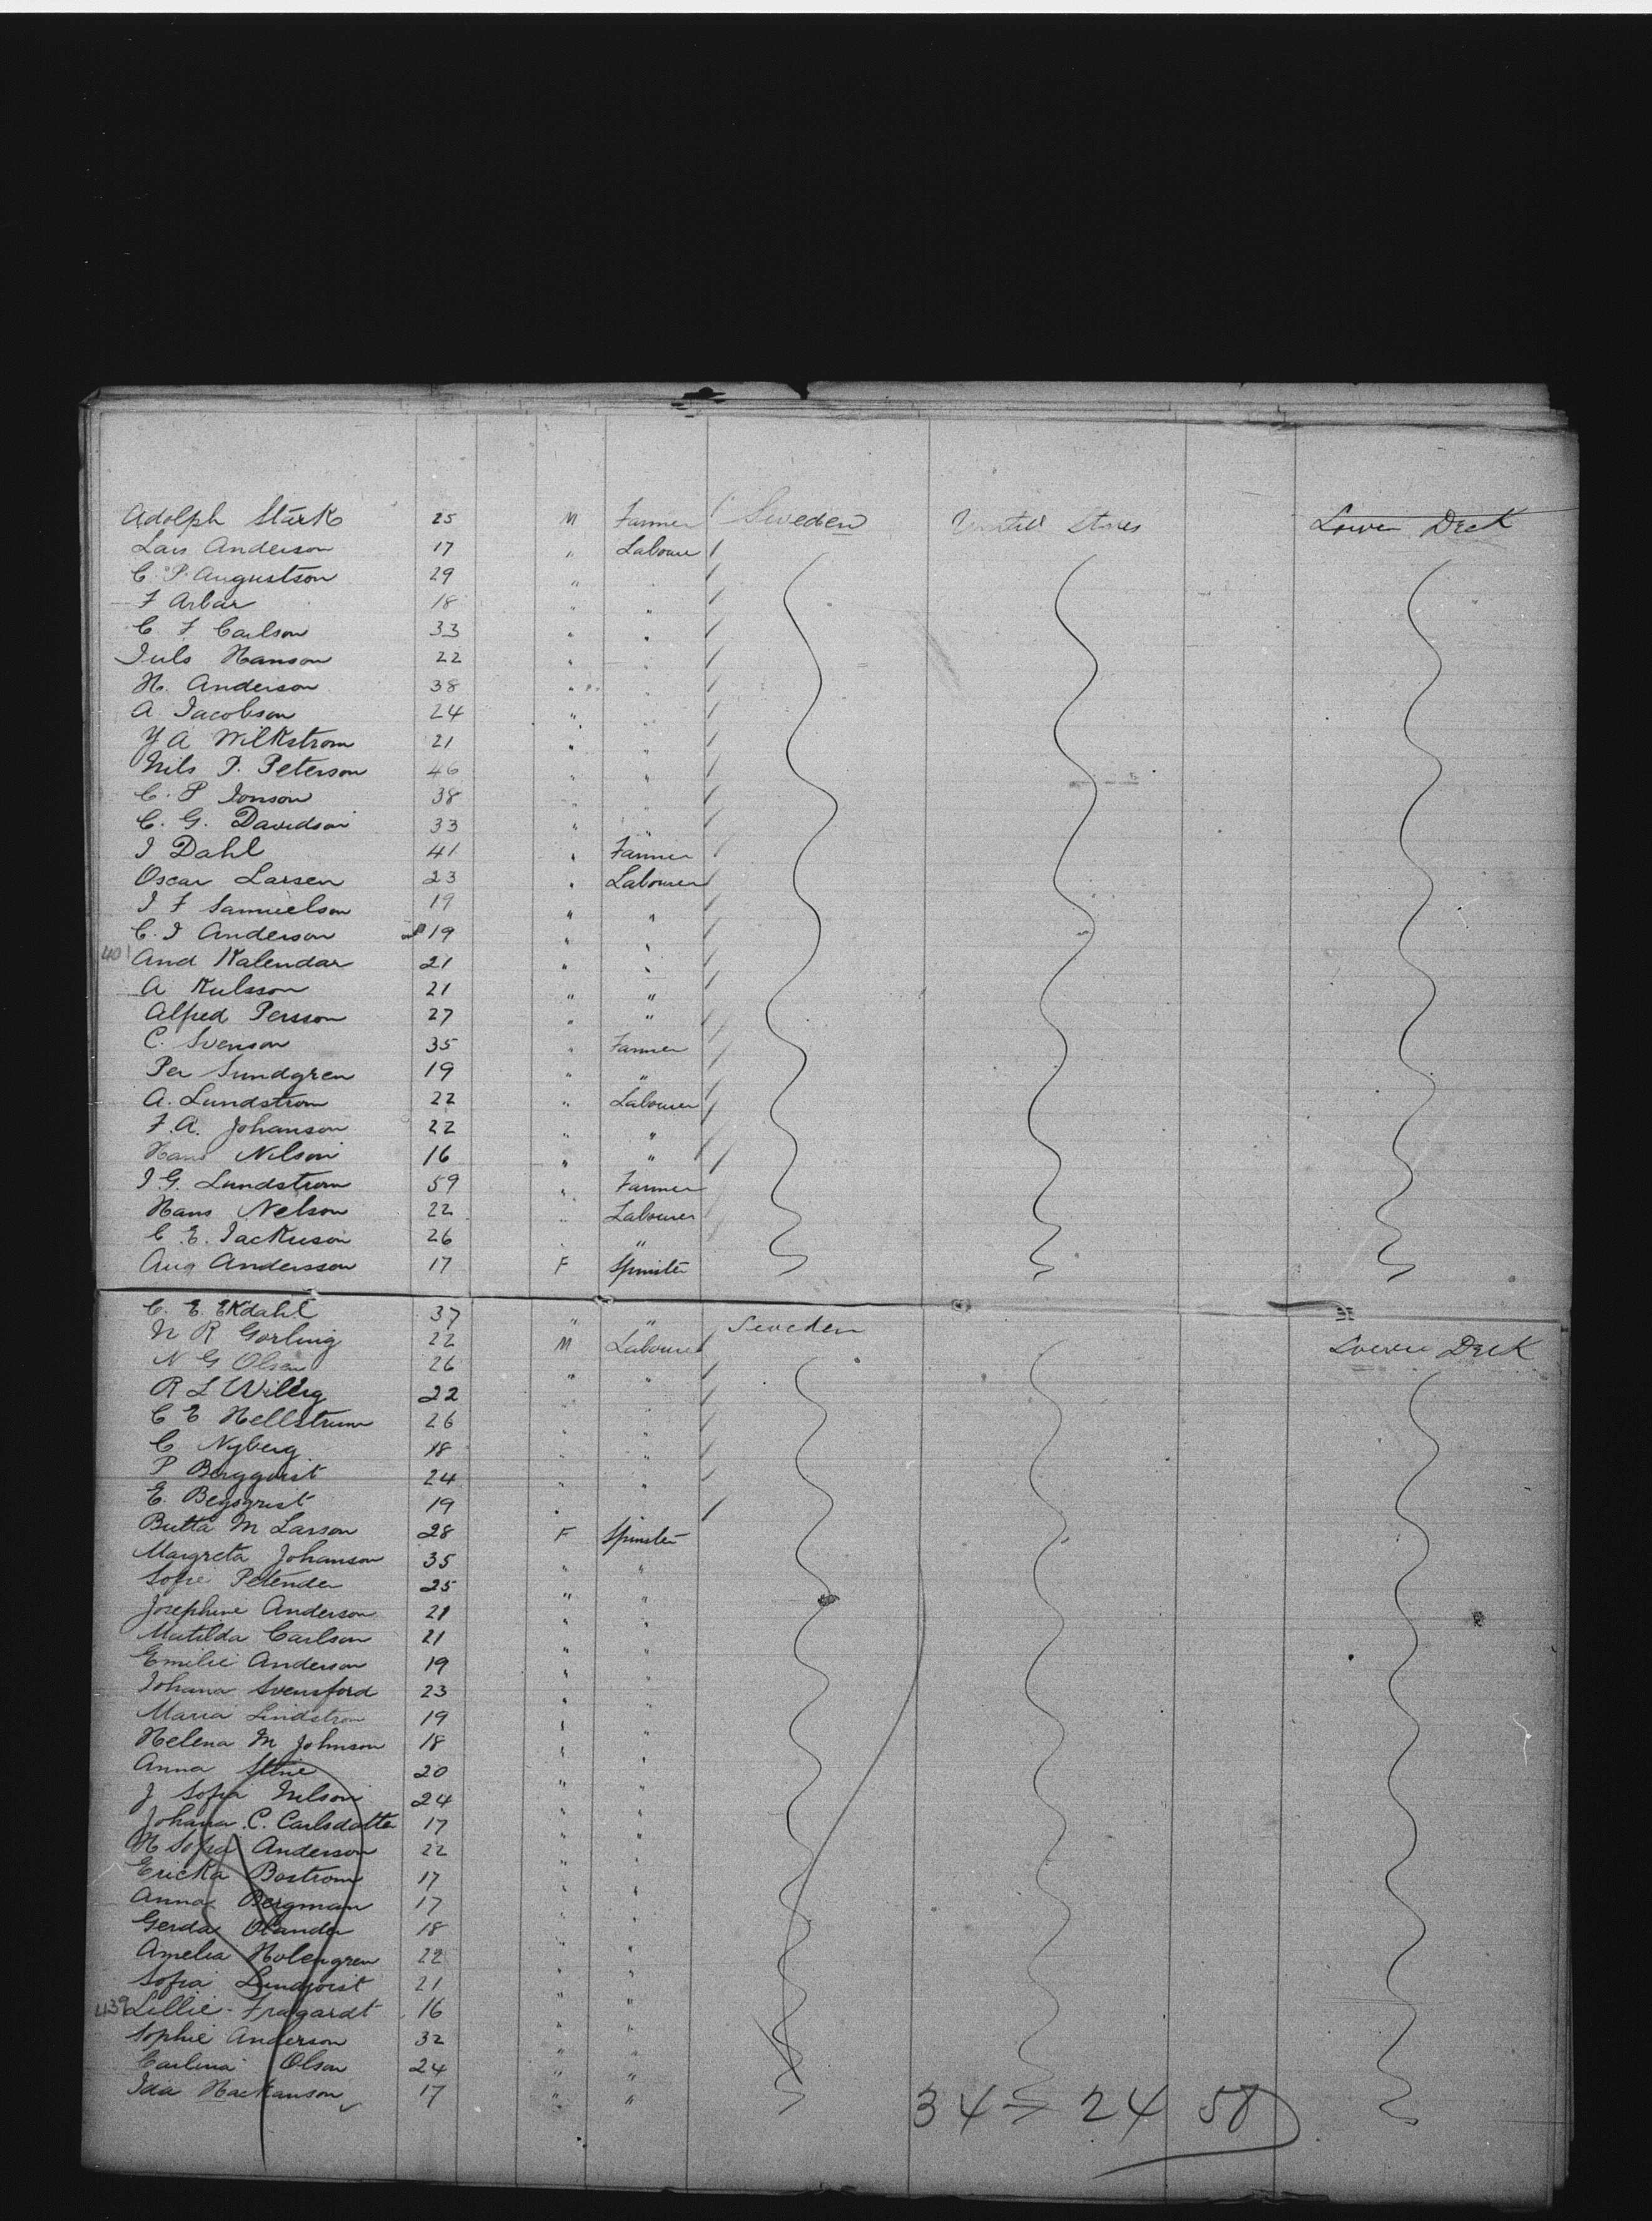 Adolph Stark 25 M Farmer Sweden United States Lower Deck
Lars Anderson 17 " Labourer
C. P. Augustson 29 "
F Arbar 18 " "
C F Carlson 33 " "
Juls Hanson 22 " "
H. Anderson 38 " "
A Jacobson 24 " "
Y A Wilkstrom 21 " "
Nils P. Peterson 46 " "
C. P Jonson 38 " "
C. G. Davidson 33 " "
J Dahl 41 " Farmer
Oscar Larsen 23 " Labourer
J F Samuelson 19 " "
C. J Anderson 19 " "
401 And Kalendar 21 " "
A Kulsson 21 " "
Alfred Persson 27 " "
C. Svenson 35 " Farmer
Per Sundgren 19 " "
A. Lundstrom 22 " Labourer
F. A. Johanson 22 " "
Hans Nilson 16 " "
J. G. Lundstrom 59 " Farmer
Hans Nelson 22 " Labourer
C E. Jackuson 26 " "
Aug Andersson 17 F Spinster
C. E. Ekdahl 37 " " Sweden
N R Gorling 22 M Labourer Lower Deck
N G Olsen 26 " "
R L Willig 22 " "
C E Hellstrum 26 " "
C Nyberg 18 " "
P Bergquist 24 " "
E. Begsqrist 19 " "
Butta M Larson 28 F Spinster
Margreta Johanson 35 " "
Sofie Petender 25 " "
Josephine Anderson 21 " "
Matilda Carlson 21 " "
Emilie Anderson 19 " "
Johana Svensford 23 " "
Maria Lindstrom 19 " "
Helena M Johnson 18 " "
Anna Stine 20 " "
J Sofia Nelson 24 " "
Johana C. Carlsdotter 17 " "
M Sofia Anderson 22 " "
Ericka Bostrom 17 " "
Anna Bergman 17 " "
Gerda Olander 18 " "
Amelia Holengren 22 " "
Sofia Lundqvist 21 " "
439 Lillie Fragardt 16 " "
Sophie Anderson 32 " "
Carlina Olson 24 " "
Ida Hackanson 17 " "
34 24 58